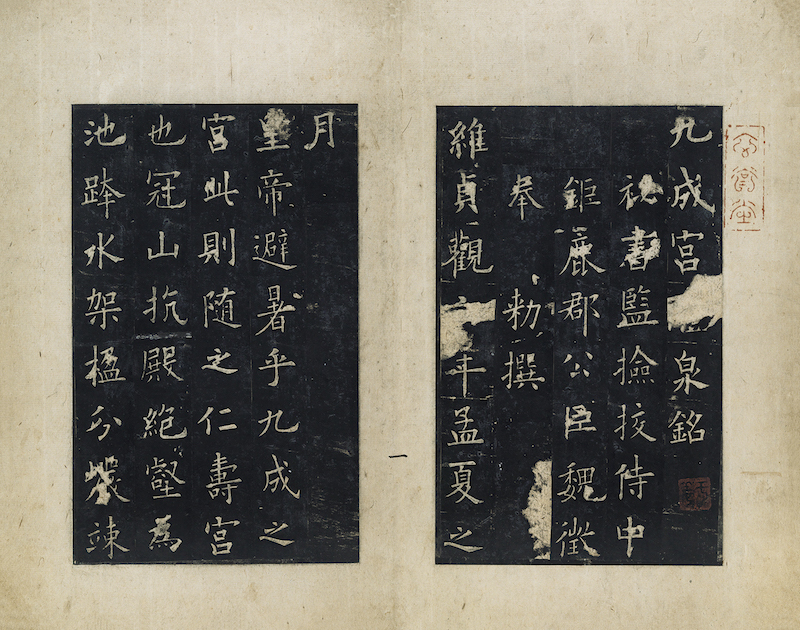 九成宮泉銘
秘書監撿挍侍中
鉅鹿郡公臣魏徵
奉 勑撰
維貞觀六年孟夏之
一
月
皇帝避暑乎九成之
宮此則随之仁壽宮
也冠山抗殿絕壑為
池跨水架楹分巖竦